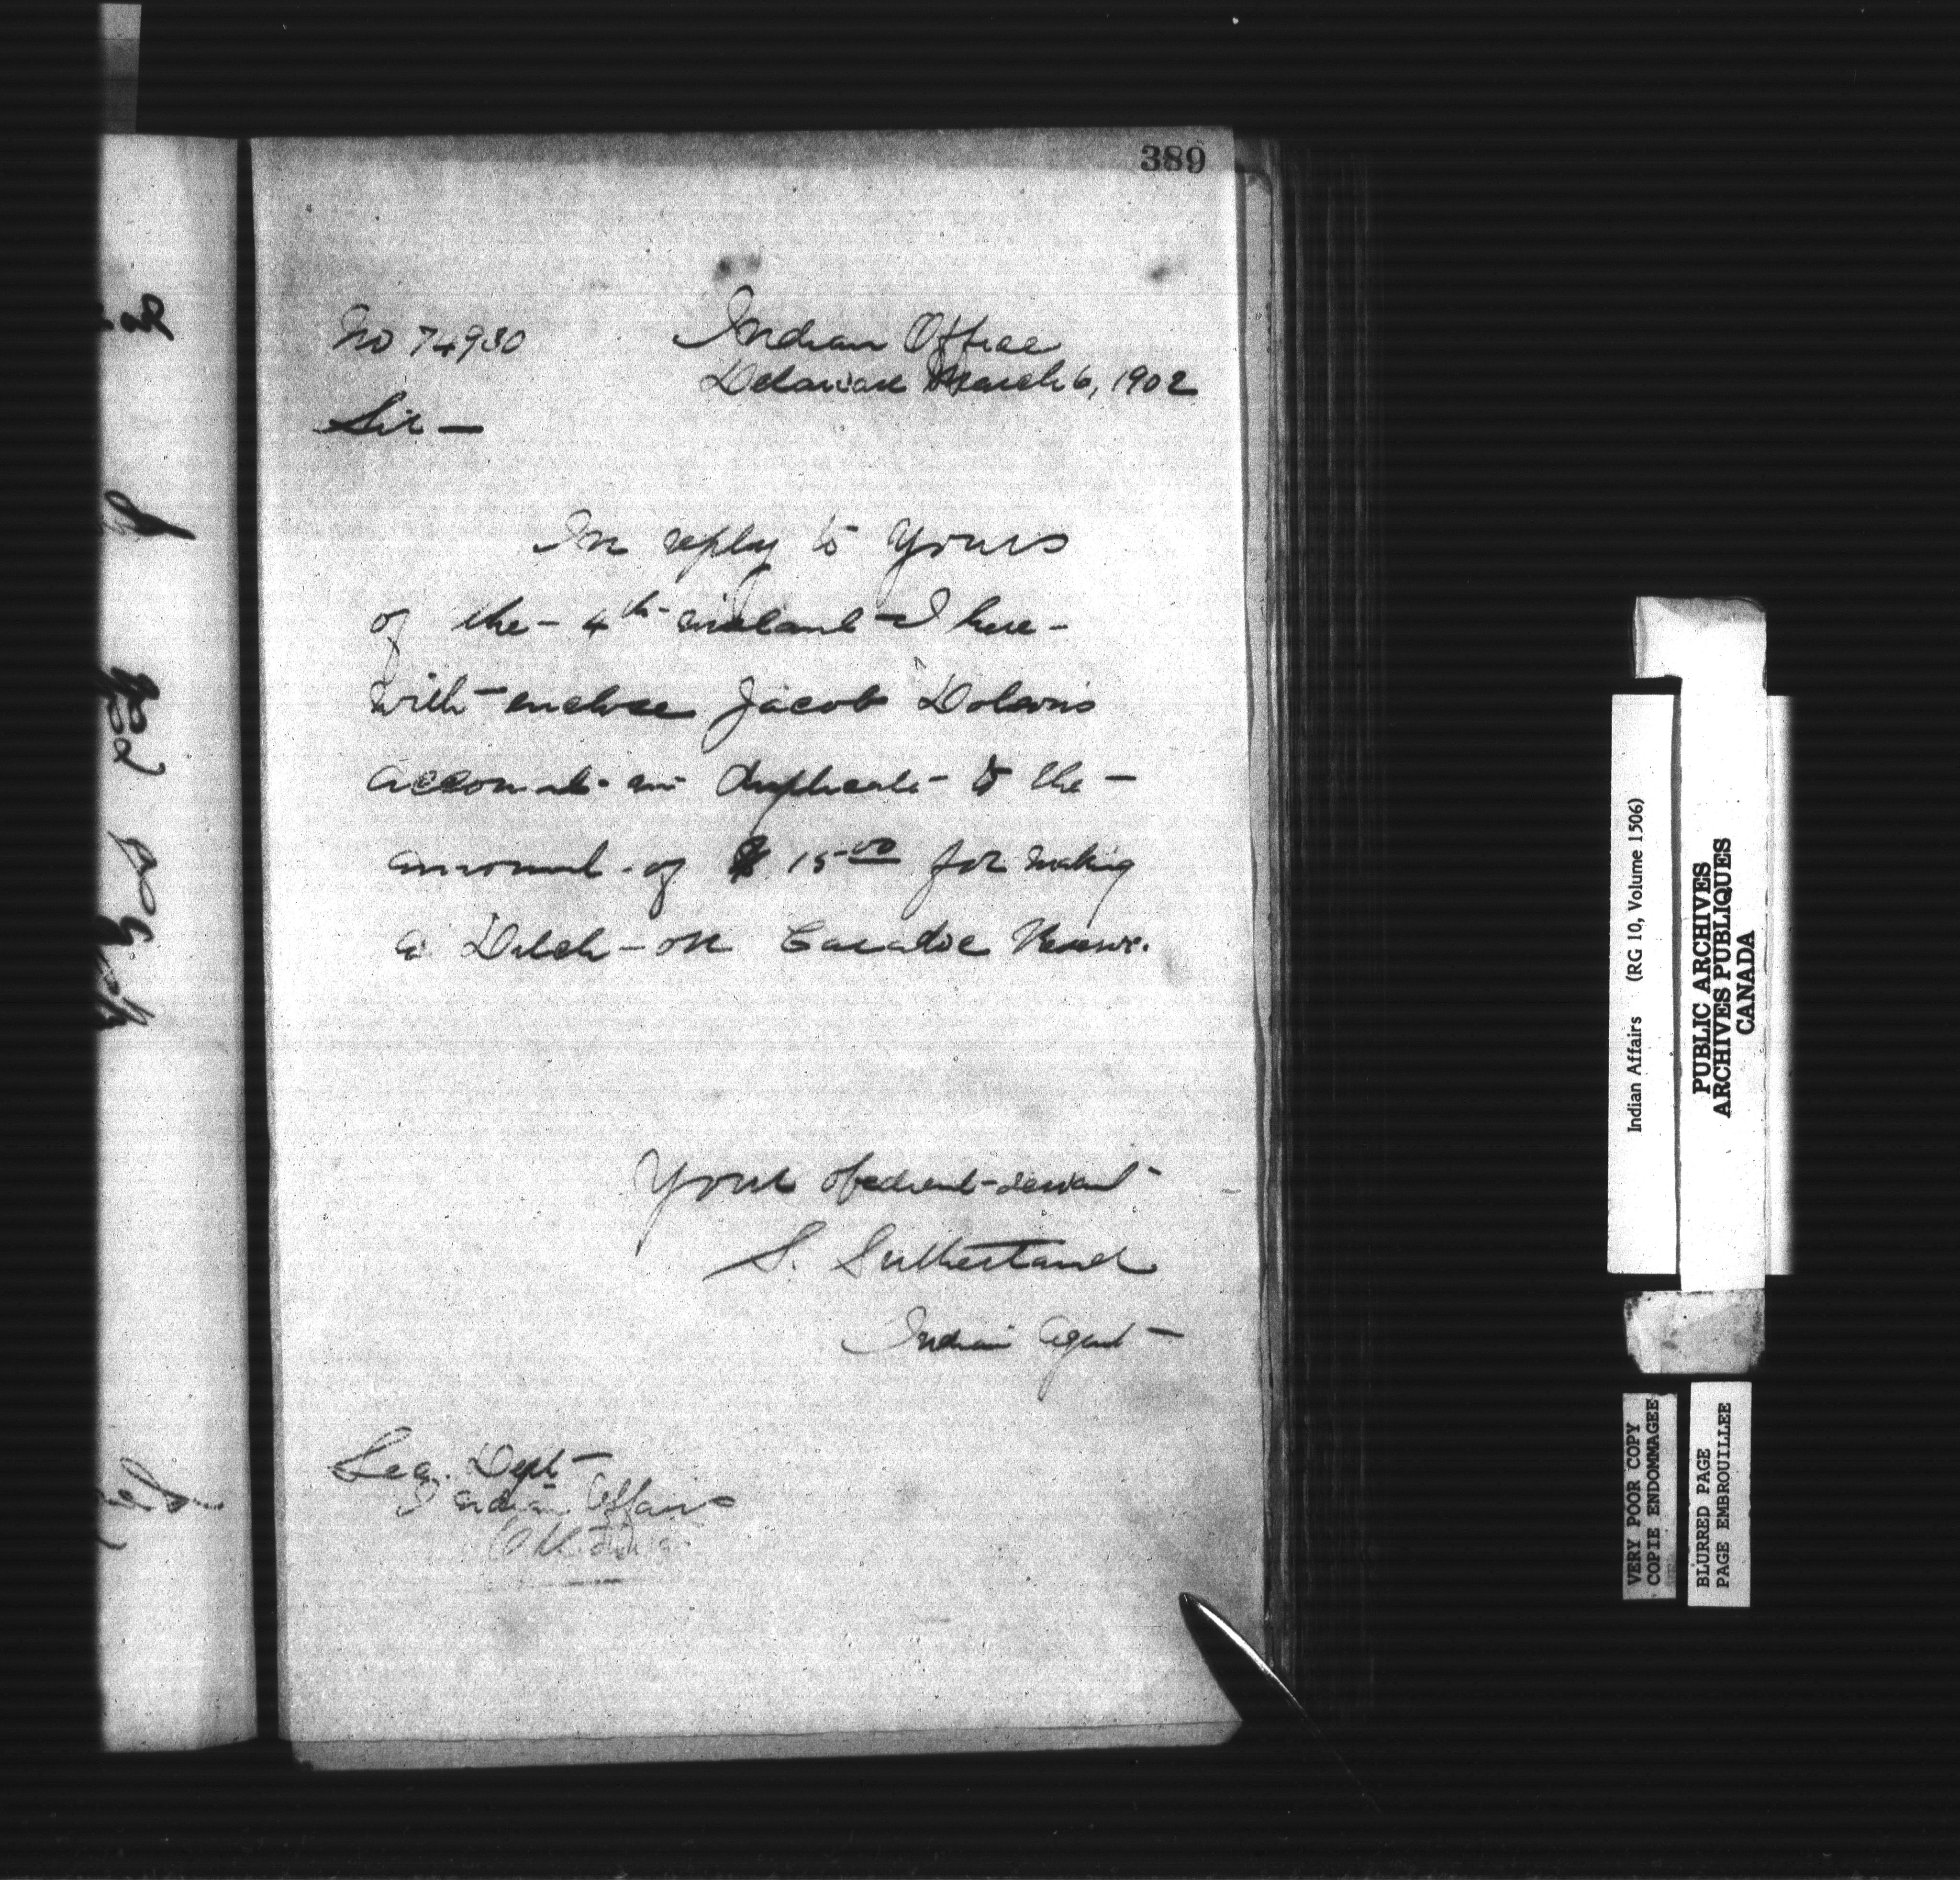 389
No 74930
Indian Office
Delaware March 6, 1902
Sir —
In reply to yours
of the - 4th instant - I here-
with - enclose Jacob
account - in duplicate - to the -
amount - of $ 15.00 for making
a Ditch - on Caradoc Reserve.
Your obedient - servant
S. Sutherland
Indian Agent -
Sec. Dept -
Indian Affairs
Ottawa
Indian Affairs (RG 10, Volume 1506)
PUBLIC ARCHIVES
ARCHIVES PUBLIQUES
CANADA
VERY POOR COPY
COPIE ENDOMMAGEE
BLURRED PAGE
PAGE EMBROUILLEE